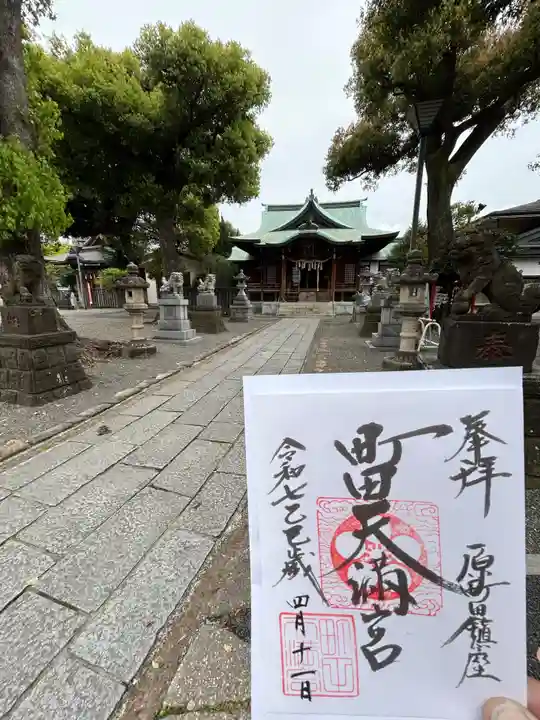 奉拝
原町田鎮座
町田天満宮
令和七乙巳歳
四月十一日
奉